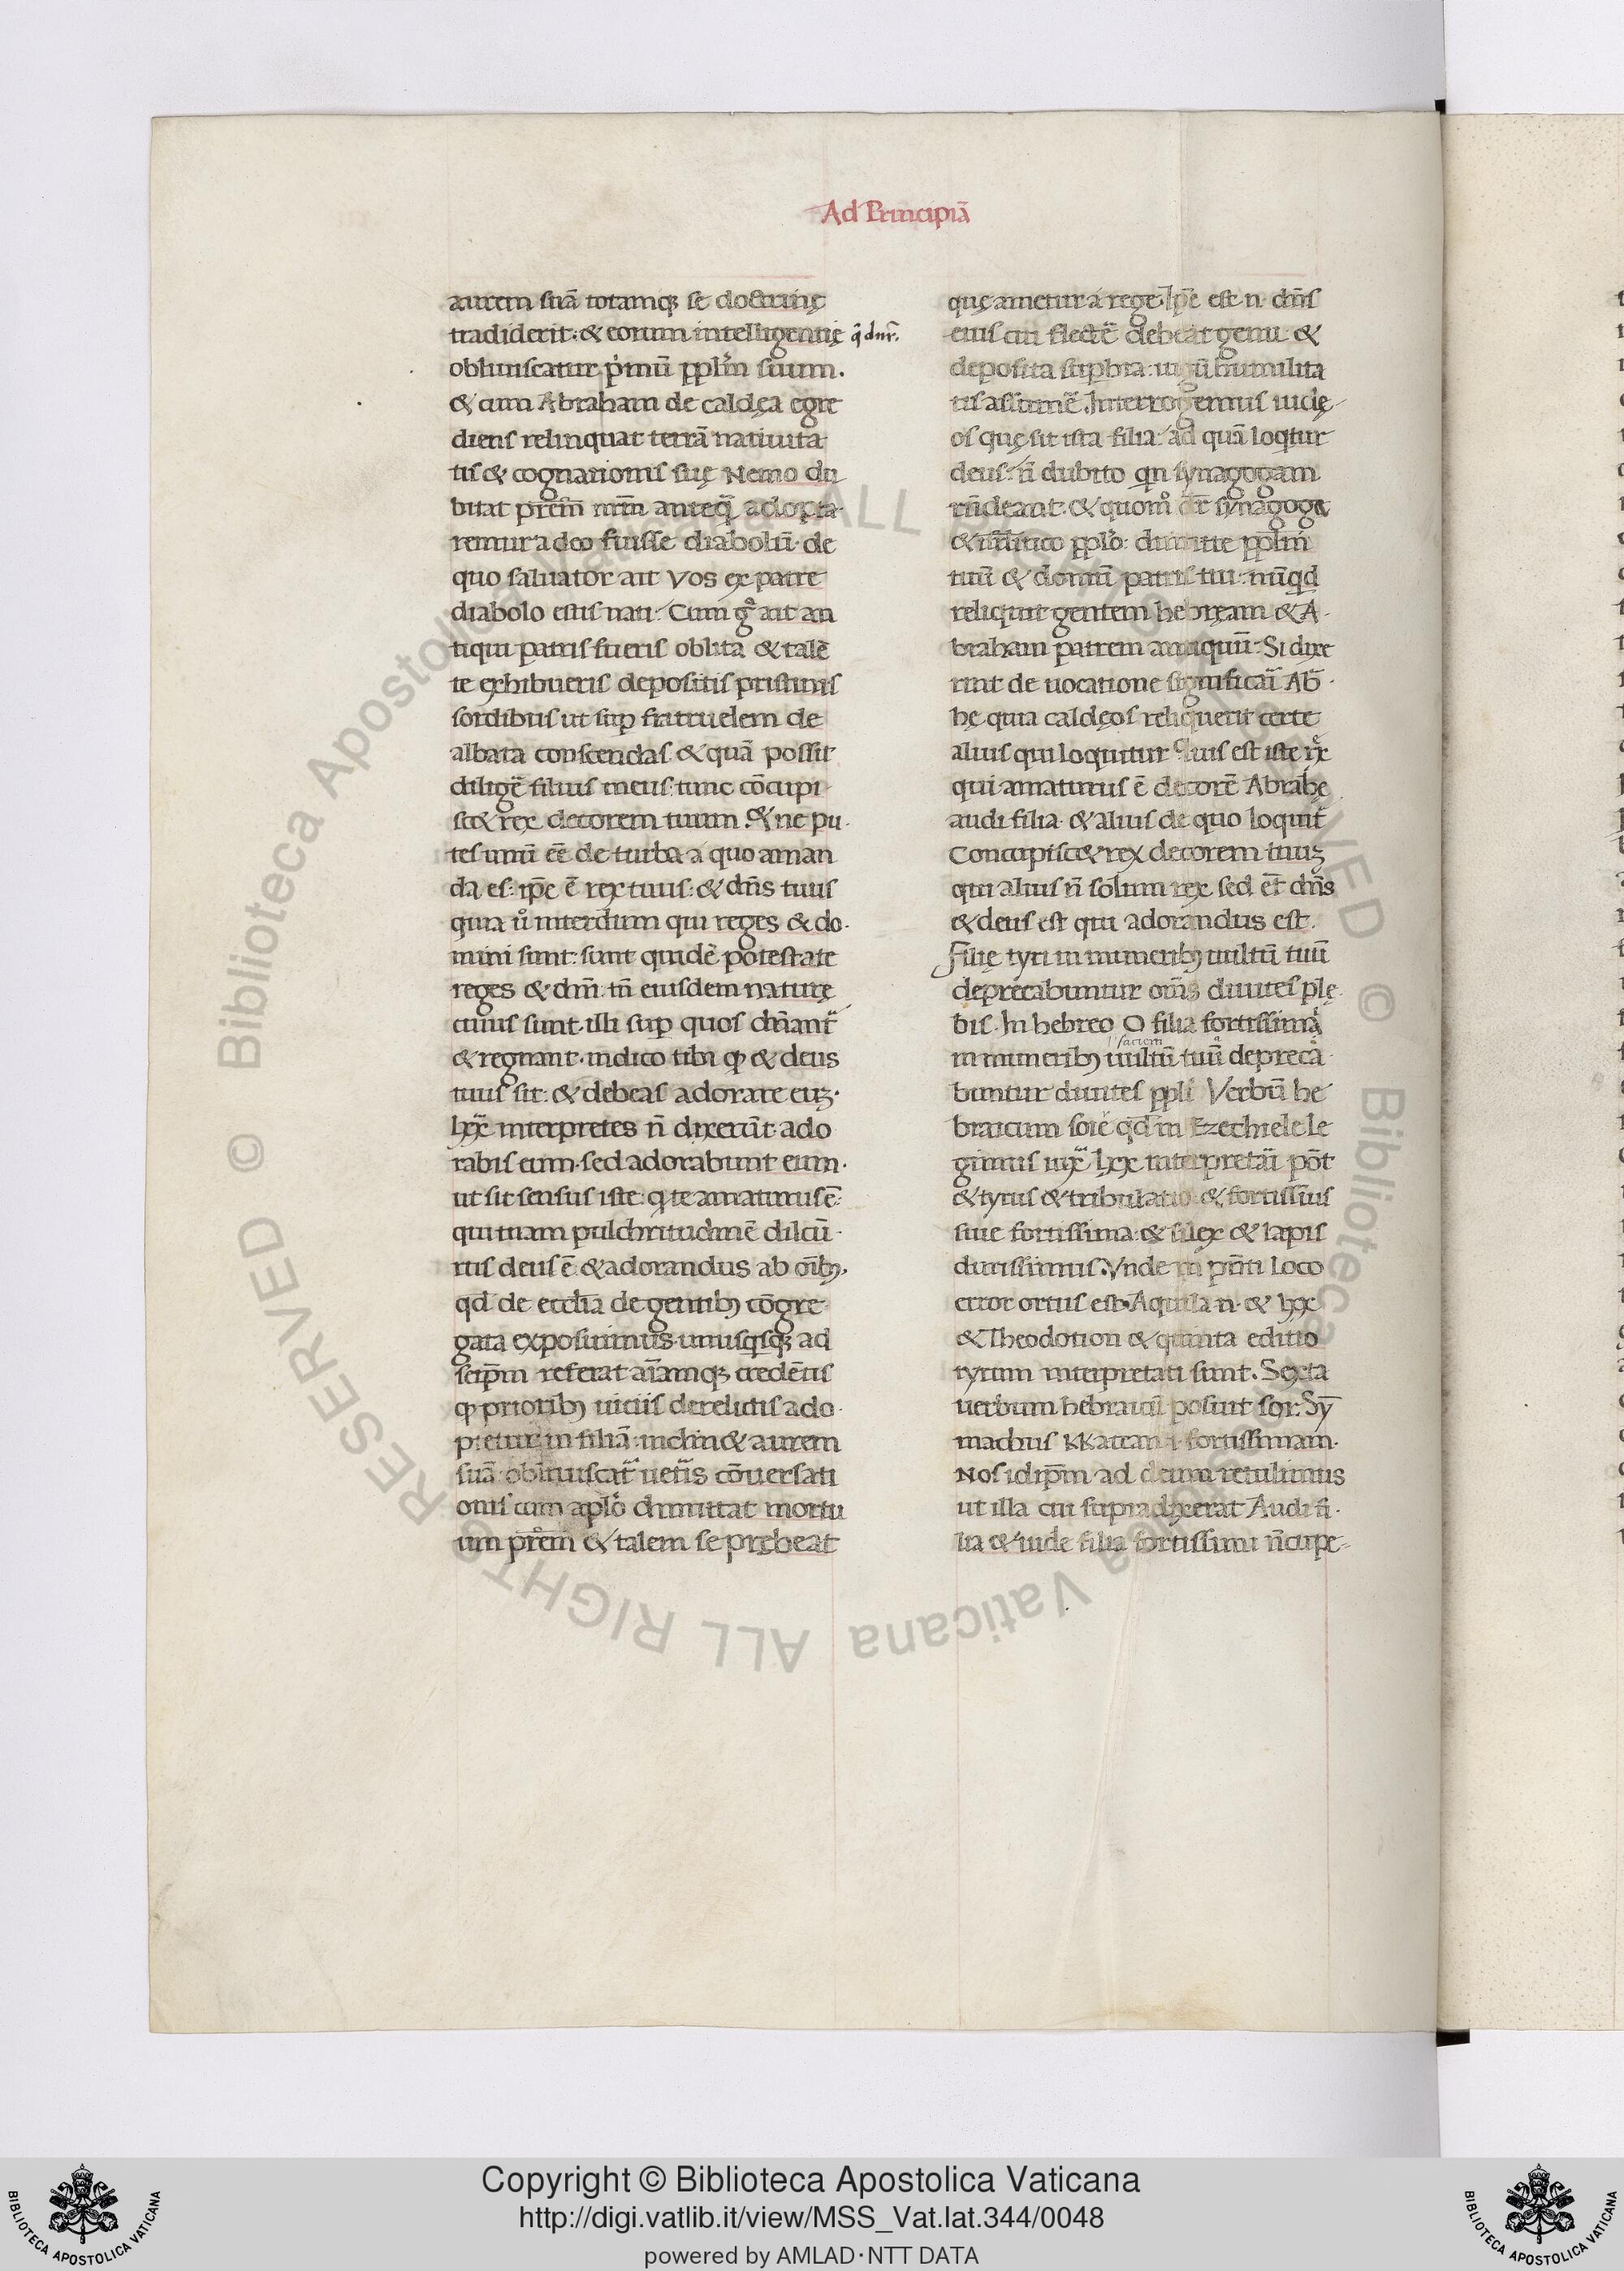 Ad Principiā
aurem suā totamqꝫ se doctrinę
tradiderit: & eorum intelligentię
q̄ dnr̄.
obliuiscatur p̓mū ppl̄m suum.
& cum Abraham de caldęa egre
diens relinquat terrā natiuita
tis & cognationis suę Nemo du
bitat pr̄em nr̄m anteq̄ adopta
remur a deo fuisse diabolū· de
quo saluator ait Vos ex patre
diabolo estis nati: Cum gͦ ait an
tiqui patris fueris oblita & talē
te exhibueris depositis pristinis
sordibus ut sup fratruelem de
albata conscendas & quā possit
diligē filius meus: tunc cōcupi
scet rex decorem tuum. & ne pu
tes unū ēe de turba a quo aman
da es: ip̄e ē rex tuus: & dn̄s tuus
quia uͦ interdum qui reges & do
mini sunt: sunt quidē potestate
reges & dn̄i tn̄ eiusdem naturę
cuius sunt illi sup quos dn̄ant̄
& regnant· indico tibi qꝫ & deus
tuus sit: & debeas adorare euꝫ·
lxx interpretes n̄ dixerūt ado
rabis eum· sed adorabunt eum·
ut sit sensus iste: q te amaturus ē:
qui tuam pulchritudinē dilcū
rus deus ē & adorandus ab oībꝫ,
qd̄ de ecclīa de gentibꝫ cōgre
gata exposuimus· unusqisqꝫ ad
seip̄m referat aīamqꝫ credētis
qꝫ prioribꝫ uiciis derelictis ado
ptetur in filiā: inclinet aurem
suā: obliuiscat̄ uet̄is cōuersati
onis cum aplo dimittat mortu
um pr̄em & talem se prębeat
quę ametur a rege Ip̄e est· n· dn̄s
eius cui flectē debeat genu: &
deposita supbia: iugū humilita
tis assumē. Interrogemus iudę
os quę sit ista filia: ad quā loqtur
deus: n̄ dubito qn synagogam
rn̄deant: & quomͦ dr̄ synagogę
& isrl̄itico pplo: dimitte ppl̄m
tuū & domū patris tui: nūqd
reliquit gentem hebręam & A
braham patrem antiquū: Si dixe
rint de uocatione significāi Ab
hę quia caldęos reliquerit certe
alius qui loquitur Quis est iste rx
qui amaturus ē decorē Abrahę
audi filia· & alius de quo loquit̄
Concupiscet rex decorem tuuꝫ
qui alius n̄ solum rex sed et̄ dn̄s
& deus est qui adorandus est.
Filię tyri in muneribꝫ uultū tuū
deprecabuntur om̄s diuites plę
bis. In hebreo O filia fortissima
l' faciem
in muneribꝫ uultū tuū depreca
buntur diuites ppli Verbū he
braicum soie qd̄ in Ezechiele le
gimus iux̄ lxx interpretāi pōt
& tyrus & tribulatio & fortissi̅us
siue fortissima: & silex & lapis
durissimus. Vnde in pn̄ti loco
error ortus est· Aquila n· & lxx
& Theodotion & quinta editio
tyrum interpretati sunt. Sexta
uerbum hebraicū posuit sor: Sy̅
machus KKatean· i· fortissimam·
Nos idip̄m ad deum retulimus
ut illa cui supra dixerat Audi fi
lia & uide filia fortissimi n̄cupe
© Biblioteca Apostolica Vaticana ALL RIGHTS RESERVED © Biblioteca Apostolica Vaticana ALL RIGHTS RESERVED
Copyright © Biblioteca Apostolica Vaticana
http://digi.vatlib.it/view/MSS_Vat.lat.344/0048
powered by AMLAD·NTT DATA
BIBLIOTECA APOSTOLICA VATICANA
BIBLIOTECA APOSTOLICA VATICANA